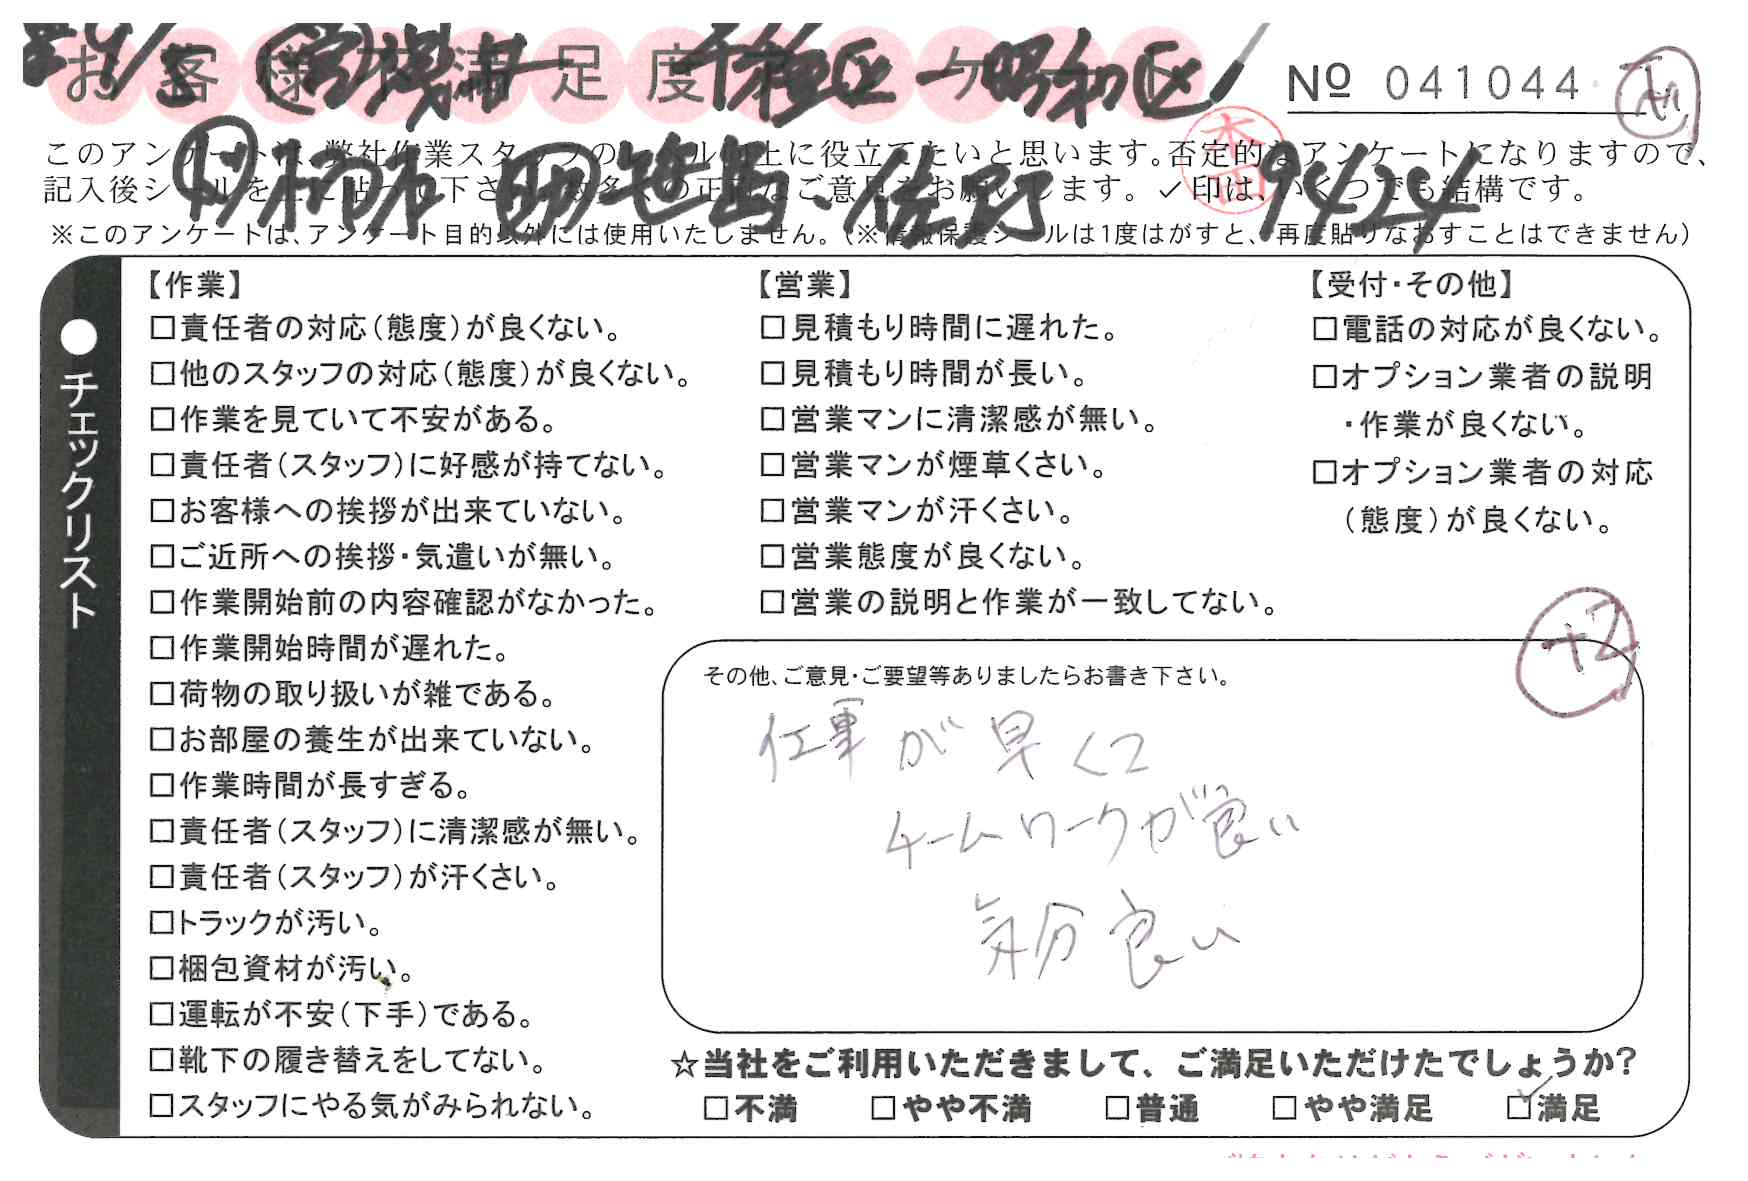 お客様不満足度アンケート
千種区→昭和区
№ 041044
このアンケートは、弊社作業スタッフのレベル向上に役立てたいと思います。否定的なアンケートになりますので、
記入後シールを上に貼って下さい。数多くの正直なご意見をお願いします。✓印は、いくつでも結構です。
※このアンケートは、アンケート目的以外には使用いたしません。(※情報保護シールは1度はがすと、再度貼りなおすことはできません)
笹島、佐野
9424
●チェックリスト
【作業】
□責任者の対応(態度)が良くない。
□他のスタッフの対応(態度)が良くない。
□作業を見ていて不安がある。
□責任者(スタッフ)に好感が持てない。
□お客様への挨拶が出来ていない。
□ご近所への挨拶・気遣いが無い。
□作業開始前の内容確認がなかった。
□作業開始時間が遅れた。
□荷物の取り扱いが雑である。
□お部屋の養生が出来ていない。
□作業時間が長すぎる。
□責任者(スタッフ)に清潔感が無い。
□責任者(スタッフ)が汗くさい。
□トラックが汚い。
□梱包資材が汚い。
□運転が不安(下手)である。
□靴下の履き替えをしてない。
□スタッフにやる気がみられない。
【営業】
□見積もり時間に遅れた。
□見積もり時間が長い。
□営業マンに清潔感が無い。
□営業マンが煙草くさい。
□営業マンが汗くさい。
□営業態度が良くない。
□営業の説明と作業が一致してない。
【受付・その他】
□電話の対応が良くない。
□オプション業者の説明
・作業が良くない。
□オプション業者の対応
(態度)が良くない。
+2
その他、ご意見・ご要望等ありましたらお書き下さい。
仕事が早くて
チームワークが良い
気分良い
☆当社をご利用いただきまして、ご満足いただけたでしょうか?
□不満 □やや不満 □普通 □やや満足 ☑満足